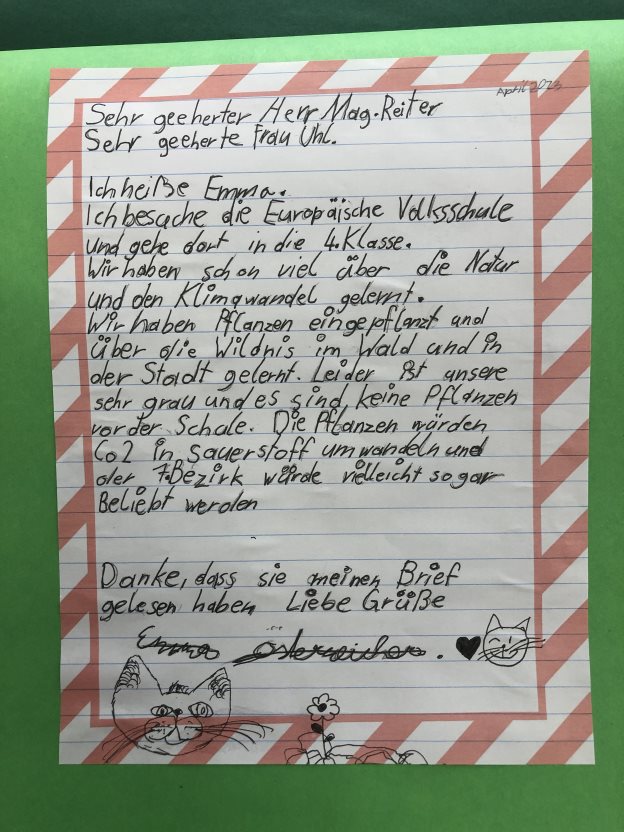 April 2023
Sehr geeherter Herr Mag. Reiter
Sehr geeherte Frau Uhl.
Ich heiße Emma.
Ich besuche die Europäische Volksschule
und gehe dort in die 4. Klasse.
Wir haben schon viel über die Natur
und den Klimawandel gelernt.
Wir haben Pflanzen eingepflanzt und
über die Wildnis im Wald und in
der Stadt gelernt. Leider ist unsere
sehr grau und es sind keine Pflanzen
vor der Schule. Die Pflanzen würden
Co2 in Sauerstoff umwandeln und
der 7. Bezirk würde vielleicht sogar
Beliebt werden
Danke, dass sie meinen Brief
gelesen haben Liebe Grüße
Emma